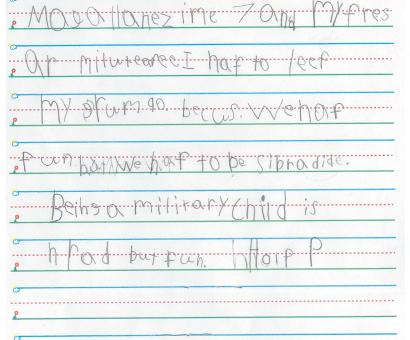 Magallanez ime 7 and my fres
ar miturearee I haf to leef
my grumgo. beccus. we haf
fun hat we haf to be sibradide.
Being a military child is
hrad but fun.